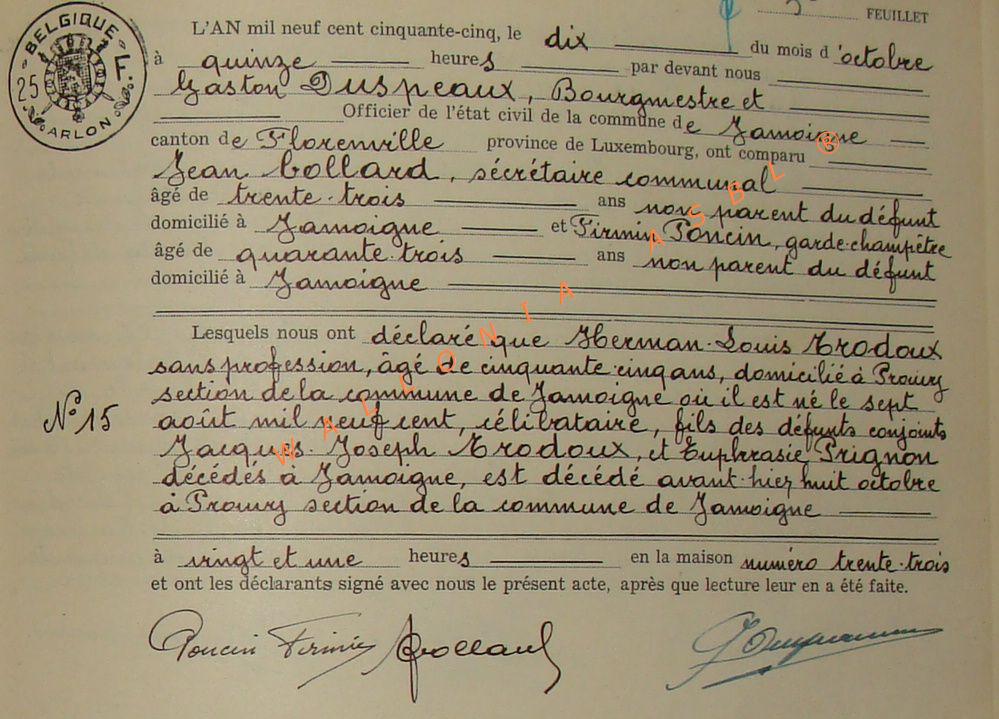 BELGIQUE
25 F.
ARLON
FEUILLET
L'AN mil neuf cent cinquante-cinq, le dix du mois d'octobre
à quinze heures par devant nous
Gaston Duspeaux, Bourgmestre et
Officier de l'état civil de la commune de Jamoigne
canton de Florenville province de Luxembourg, ont comparu
Jean Collard, secrétaire communal
âgé de trente-trois ans non parent du défunt
domicilié à Jamoigne et Firmin Poncin, garde-champêtre
âgé de quarante-trois ans non parent du défunt
domicilié à Jamoigne
Lesquels nous ont déclaré que Herman-Louis Trodoux
sans profession, âgé de cinquante-cinq ans, domicilié à Prouvy
section de la commune de Jamoigne où il est né le sept
août mil neuf cent, célibataire, fils des défunts conjoints
N° 15
Jacques-Joseph Trodoux, et Euphrasie Prignon
décédés à Jamoigne, est décédé avant-hier huit octobre
à Prouvy section de la commune de Jamoigne
à vingt et une heures en la maison numéro trente-trois
et ont les déclarants signé avec nous le présent acte, après que lecture leur en a été faite.
Poncin Firmin JCollard
WALLONIA ASBL ®